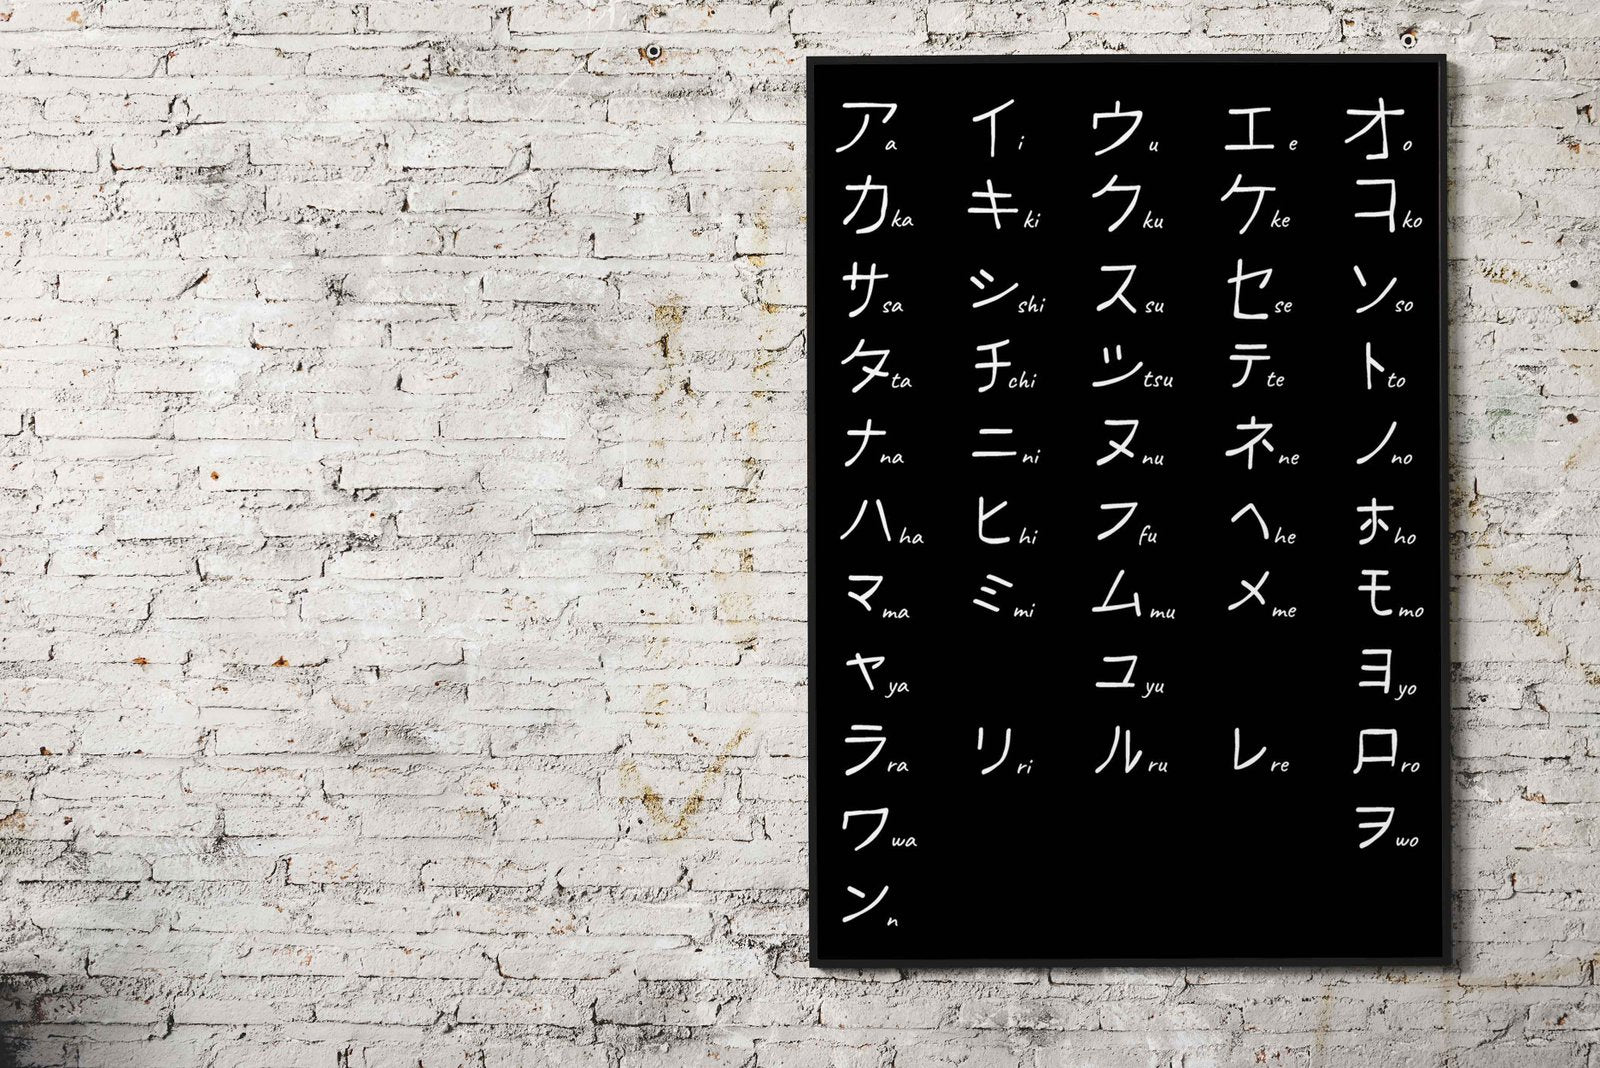 ア a イ i ウ u エ e オ o
カ ka キ ki ク ku ケ ke コ ko
サ sa シ shi ス su セ se ソ so
タ ta チ chi ツ tsu テ te ト to
ナ na ニ ni ヌ nu ネ ne ノ no
ハ ha ヒ hi フ fu ヘ he ホ ho
マ ma ミ mi ム mu メ me モ mo
ヤ ya ユ yu ヨ yo
ラ ra リ ri ル ru レ re ロ ro
ワ wa ヲ wo
ン n